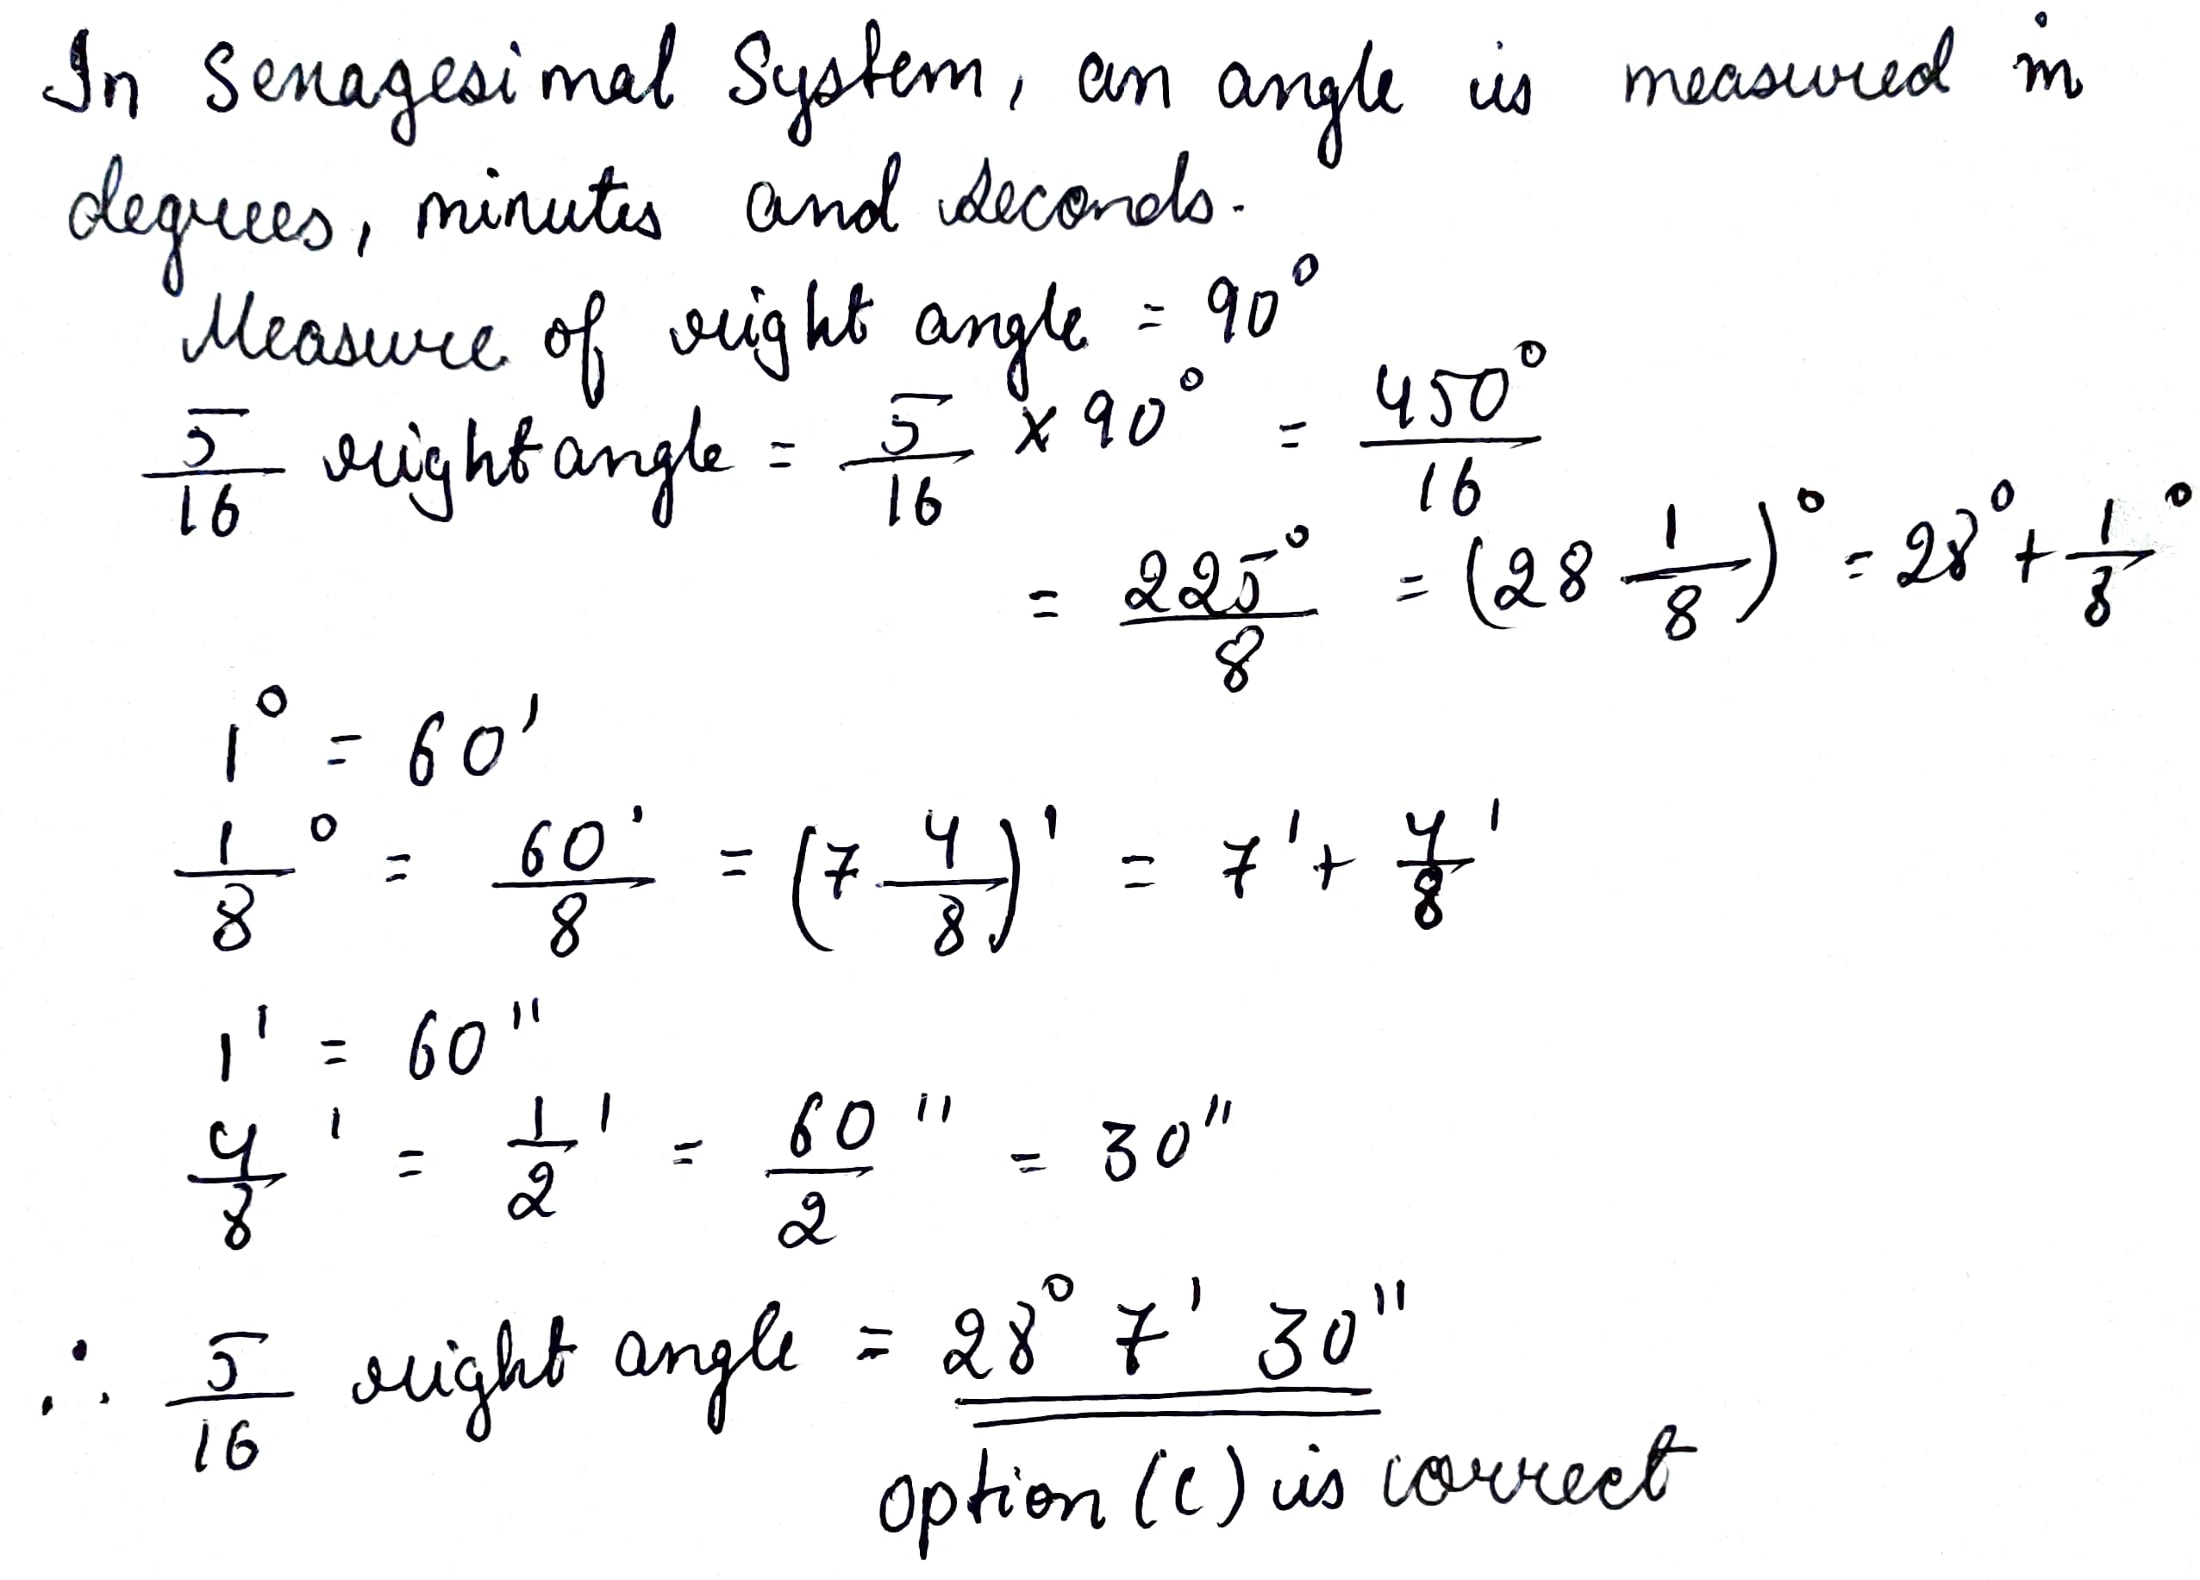 In Sexagesimal System, an angle is measured in
degrees, minutes and seconds.
Measure of right angle = 90°
5/16 right angle = 5/16 × 90° = 450°/16
= 225°/8 = (28 1/8)° = 28° + 1/8°
1° = 60'
1/8° = 60'/8 = (7 4/8)' = 7' + 4/8'
1' = 60"
4/8' = 1/2' = 60"/2 = 30"
∴ 5/16 right angle = 28° 7' 30"
option (c) is correct